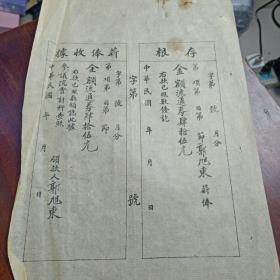 存根
字第 號 月分
第 項第 目第 節 郭旭東 薪俸
金額流通券肆拾伍元
右款已照數條訖
中華民國 年 月 日
字第 號
薪俸收據
字第 號 月分
第 項第 目第 節
金額流通券肆拾伍元
右款已照數領訖此據
參議沉雷計核查照
領款人郭旭東
中華民國 年 月 日